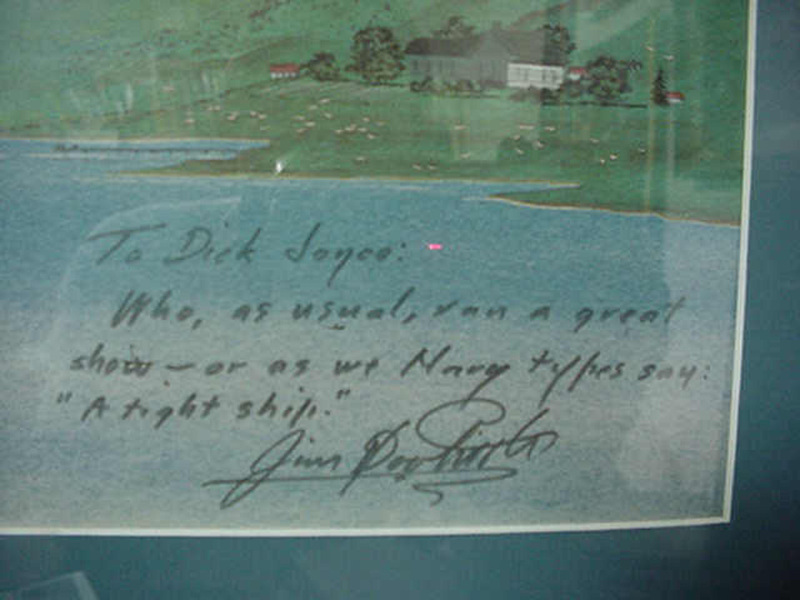 To Dick Joyce:
Who, as usual, ran a great
show — or as we Navy types say:
"A tight ship."
Jim